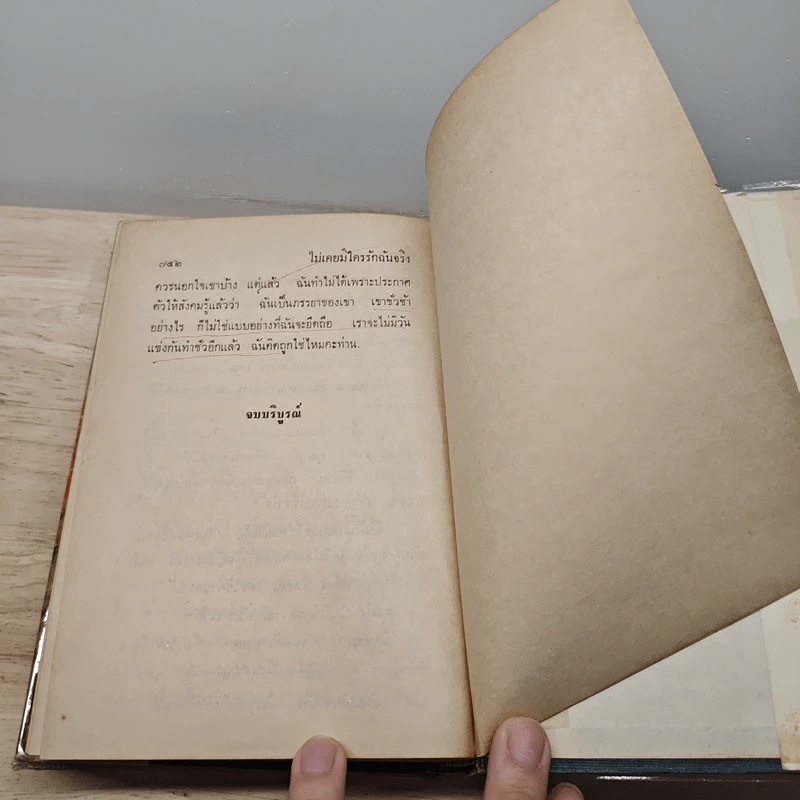 ๗๕๒ ไม่เคยมีใครรักฉันจริง
ควรนอกใจเขาบ้าง แต่แล้ว ฉันทำไม่ได้เพราะประกาศ
ตัวให้สังคมรู้แล้วว่า ฉันเป็นภรรยาของเขา เขาชั่วช้า
อย่างไร ก็ไม่ใช่แบบอย่างที่ฉันจะยึดถือ เราจะไม่มีวัน
แข่งกันทำชั่วอีกแล้ว ฉันคิดถูกใช่ไหมคะท่าน.
จบบริบูรณ์